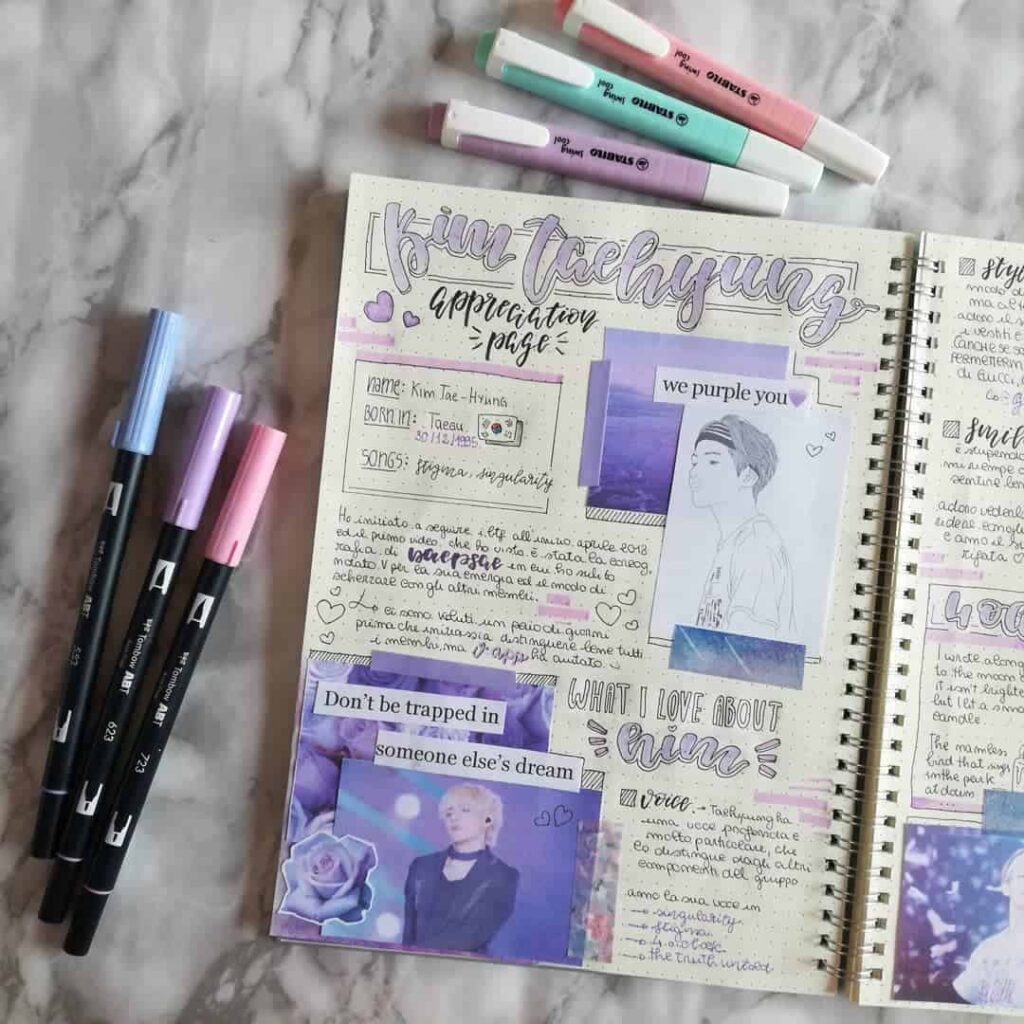 STABILO swing cool
STABILO swing cool
STABILO swing cool
Tombow ABT
Tombow ABT
623
Tombow ABT
723
Kim Taehyung
appreciation
page
name: Kim Tae-Hyung
BORN IN: Taegu
30/12/1995
SONGS: stigma, singularity
we purple you
Ho iniziato a seguire i btf all'inizio aprile 2018
ed il primo video che ho visto è stata la coreog.
rafia di baepsae in cui ho subito
notato V per la sua energia ed il modo di
scherzare con gli altri membri.
ci sono voluti un paio di giorni
prima che iniziassi a distinguere bene tutti
i membri, ma V app ha aiutato
Don't be trapped in
someone else's dream
WHAT I LOVE ABOUT
him
voice → Taehyung ha
una voce profonda e
molto particolare, che
lo distingue dagli altri
componenti del gruppo
amo la sua voce in
→ singularity
→ stigma
→ 4 o'clock
→ the truth untold
style
modo d
ma al t
adoro il s
i vestiti e
(anche se so
permetterm
di Gucci,
smile
è stupendo
mi riempe
sentire ben
adoro vederl
e amo il s
4 o'c
I wrote along
to the moon
it isn't brighte
but I lit a sma
candle
The namless
bird that sings
in the park
at dawn